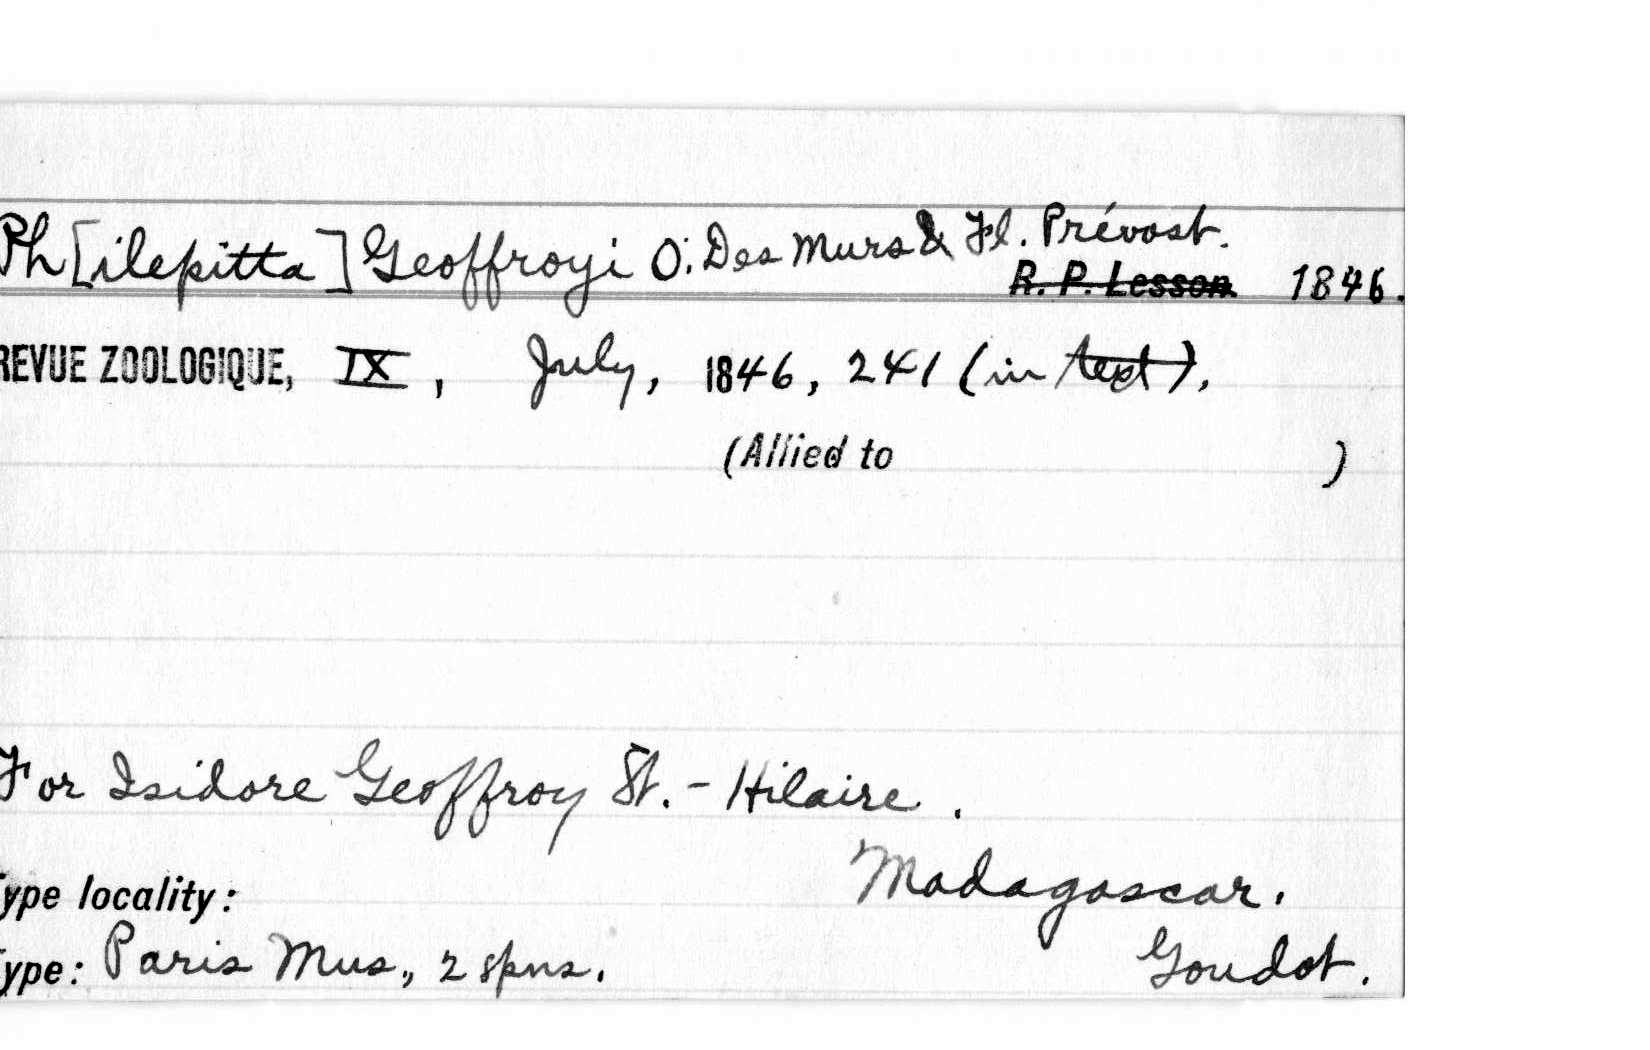 Ph[ilepitta] Geoffroyi O. Des Murs & Fl. Prévost.
R. P. Lesson. 1846.
REVUE ZOOLOGIQUE, IX, July, 1846, 241 (in text).
(Allied to )
For Isidore Geoffroy St.-Hilaire.
ype locality: Madagascar.
ype: Paris Mus., 2 spns. Goudot.